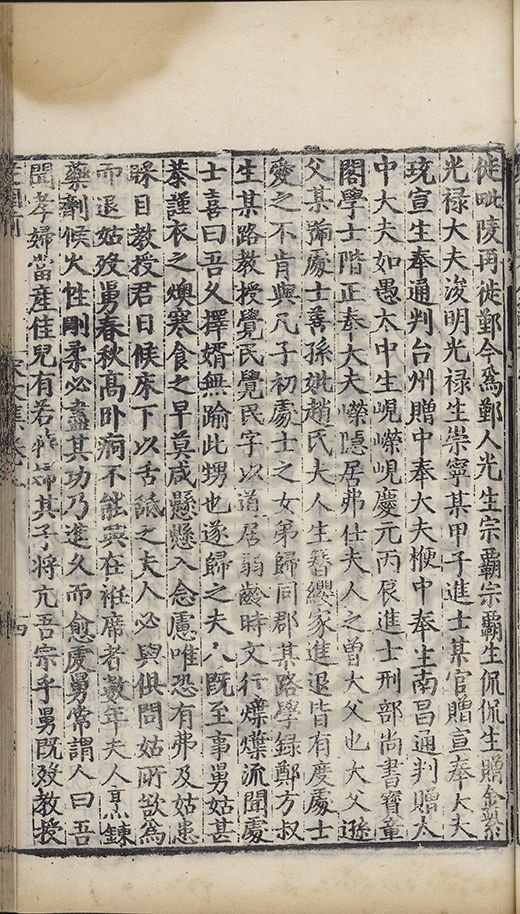 徙毗陵再徙鄞今爲鄞人光生宗霸宗霸生侃侃生贈金紫
光禄大夫浚明光禄生崇寧某甲子進士某官贈宣奉大夫
琥宣生奉通判台州贈中奉大夫楩中奉生南昌通判贈太
中大夫如愚太中生峴嶸峴慶元丙辰進士刑部尚書寳章
閣學士階正奉大夫嶸隱居弗仕夫人之曽大父也大父遜
父某論處士善孫妣趙氏夫人生簪纓家進退皆有度處士
愛之不肯與凡子初處士之女弟歸同郡某路學録鄭方叔
生某路教授覺民覺民字以道居弱齡時文行燁燁流聞處
士喜曰吾久擇婿無踰此甥也遂歸之夫人既至事舅姑甚
恭謹衣之燠寒食之早莫咸懸懸入念慮唯恐有弗及姑患
眯目教授君日候床下以舌舐之夫人必與俱問姑所欲為
而退姑歿舅春秋高卧痾不能興在袵席者数年夫人烹鍊
藥劑候火性剛柔必盡其功乃進久而愈虔舅常謂人曰吾
聞孝婦當産佳兒有若婦其子將亢吾宗乎舅既歿教授
四